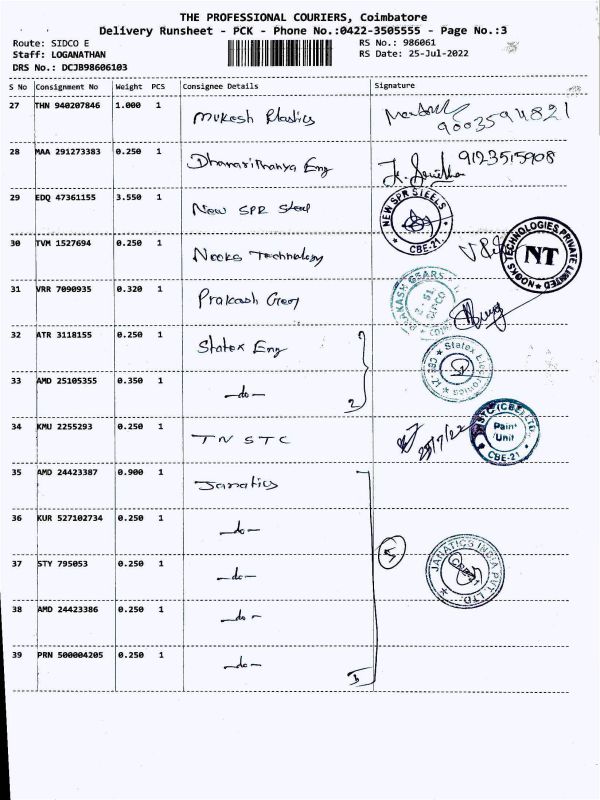 THE PROFESSIONAL COURIERS, Coimbatore
Delivery Runsheet - PCK - Phone No.:0422-3505555 - Page No.:3
Route: SIDCO E
RS No.: 986061
Staff: LOGANATHAN
RS Date: 25-Jul-2022
DRS No.: DCJB98606103
S No Consignment No Weight PCS Consignee Details Signature
27 THN 940207846 1.000 1 Mukesh Plastics 9003594821
28 MAA 291273383 0.250 1 Dhanarithanya Eng 9123515908
29 EDQ 47361155 3.550 1 New SPR Steel
NEW SPR STEELS
CBE-21.
30 TVM 1527694 0.250 1 Nooks Technology
NOOKS TECHNOLOGIES PRIVATE LIMITED
NT
31 VRR 7090935 0.320 1 Prakash Gear
PRAKASH GEARS
32 ATR 3118155 0.250 1 Statex Eng
Statex
33 AMD 25105355 0.350 1 -do-
2
34 KMU 2255293 0.250 1 TNSTC 25/7/22
STC (CBE) LTD.
Paint
Unit
CBE-21
35 AMD 24423387 0.900 1 Janatics
36 KUR 527102734 0.250 1 -do-
5
JANATICS INDIA PVT. LTD.
37 STY 795053 0.250 1 -do-
38 AMD 24423386 0.250 1 -do-
39 PRN 500004205 0.250 1 -do-
5